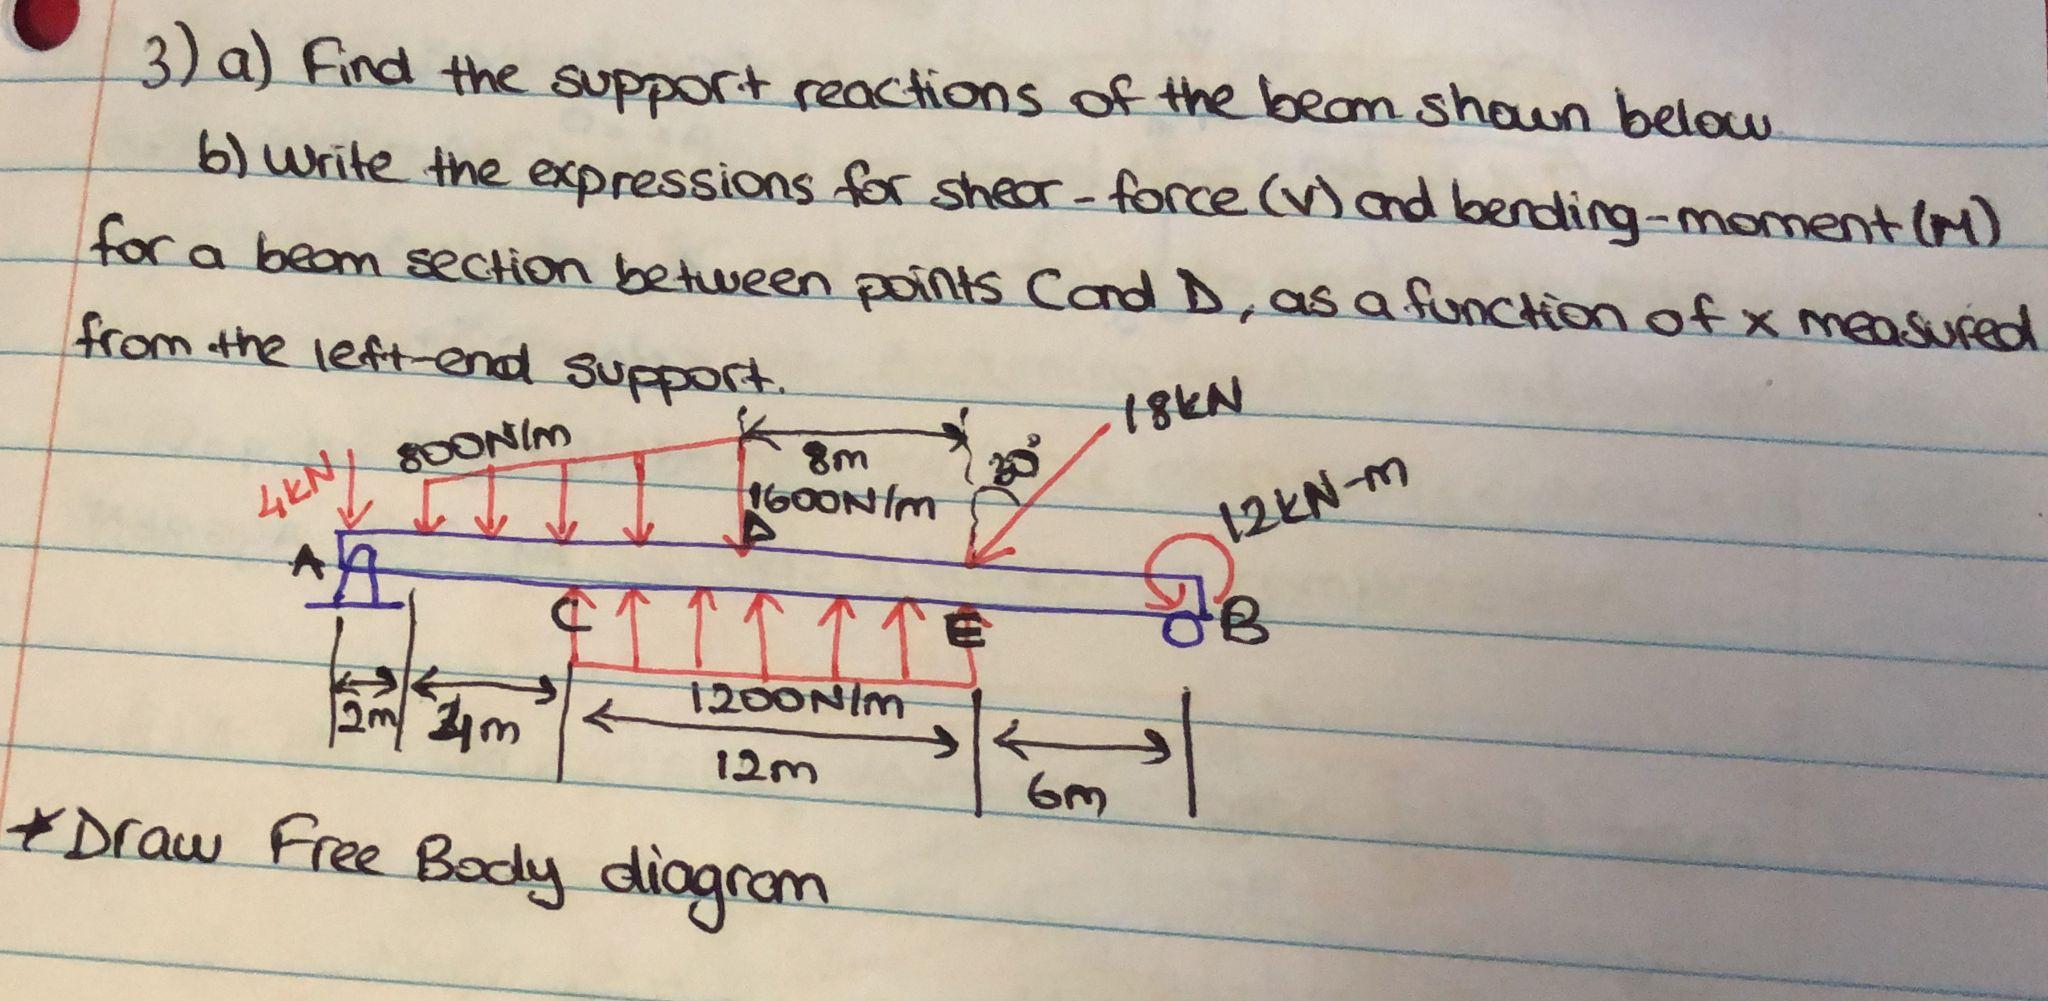 3) a) Find the support reactions of the beam shown below
b) Write the expressions for shear-force (V) and bending-moment (M)
for a beam section between points C and D, as a function of x measured
from the left-end support.
18kN
800N/m
8m
30°
4kN
1600N/m
12kN-m
D
A
C
E
B
2m
4m
1200N/m
12m
6m
*Draw Free Body diagram